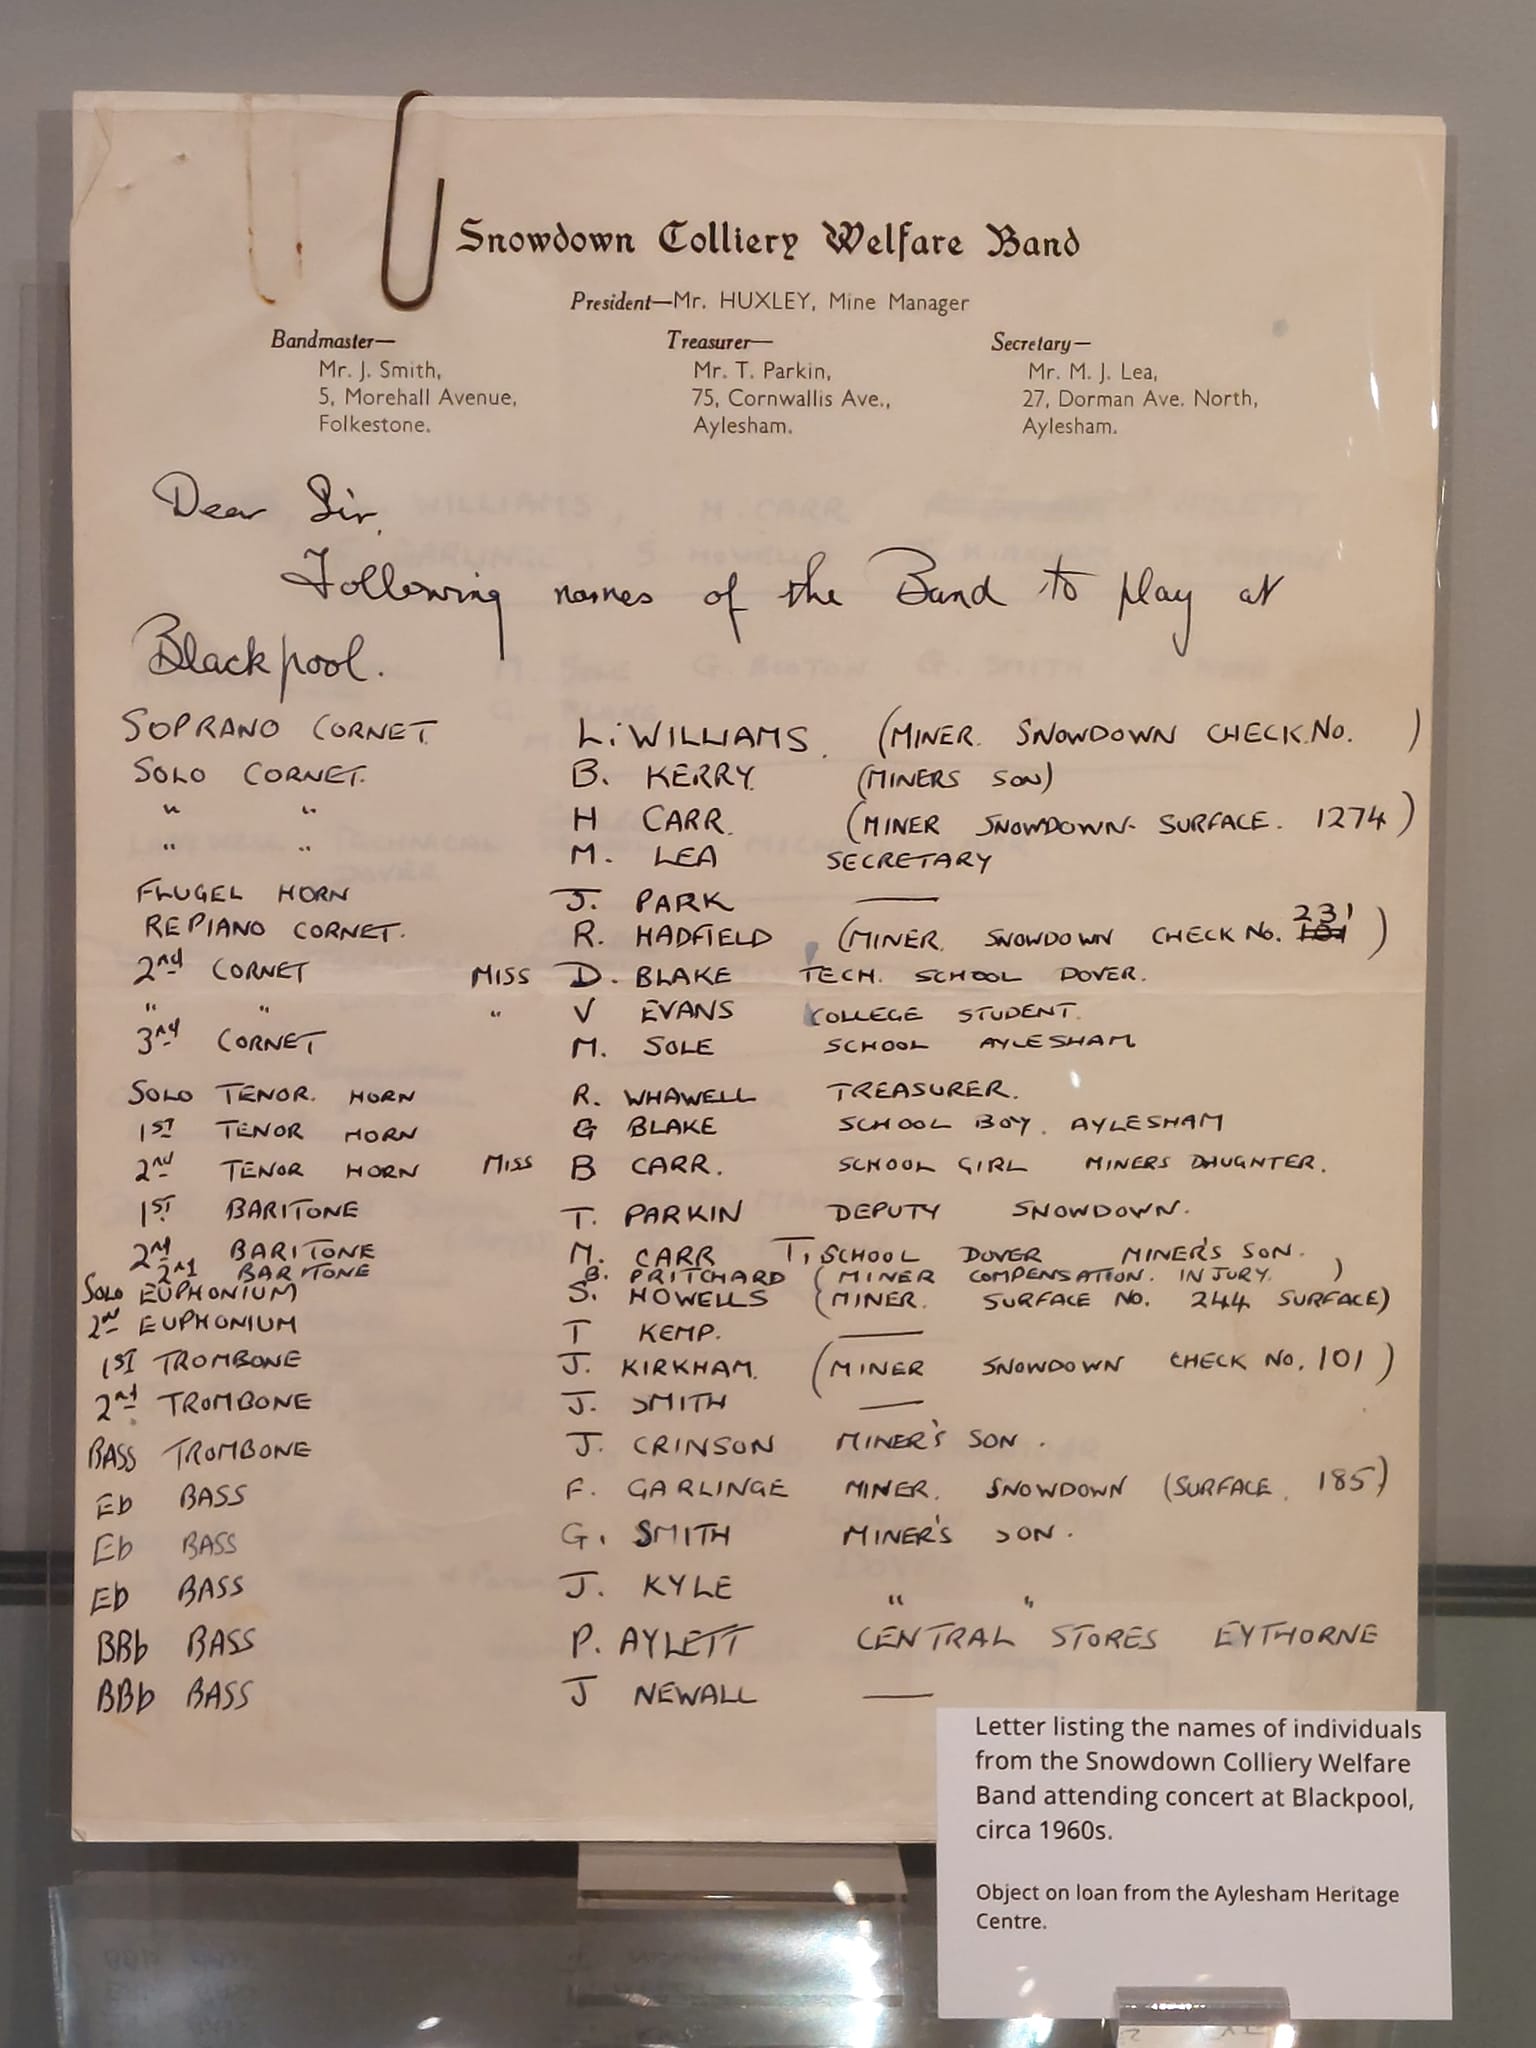 Snowdown Colliery Welfare Band
President—Mr. HUXLEY, Mine Manager
Bandmaster— Treasurer— Secretary—
Mr. J. Smith, Mr. T. Parkin, Mr. M. J. Lea,
5, Morehall Avenue, 75, Cornwallis Ave., 27, Dorman Ave. North,
Folkestone. Aylesham. Aylesham.
Dear Sir,
Following names of the Band to play at
Blackpool.
SOPRANO CORNET. L. WILLIAMS. (MINER. SNOWDOWN CHECK.NO. )
SOLO CORNET. B. KERRY. (MINERS SON)
" " H CARR. (MINER SNOWDOWN- SURFACE. 1274)
" " M. LEA SECRETARY
FLUGEL HORN J. PARK —
REPIANO CORNET. R. HADFIELD (MINER. SNOWDOWN CHECK NO. 101 231)
2nd CORNET MISS D. BLAKE TECH. SCHOOL DOVER.
" " " V EVANS COLLEGE STUDENT.
3rd CORNET M. SOLE SCHOOL AYLESHAM
SOLO TENOR. HORN R. WHAWELL TREASURER.
1ST TENOR HORN G BLAKE SCHOOL BOY. AYLESHAM
2nd TENOR HORN MISS B CARR. SCHOOL GIRL MINERS DAUGNTER.
1ST BARITONE T. PARKIN DEPUTY SNOWDOWN.
2nd BARITONE M. CARR T, SCHOOL DOVER MINER'S SON.
2nd BARITONE B. PRITCHARD (MINER COMPENSATION. INJURY. )
SOLO EUPHONIUM S. HOWELLS (MINER. SURFACE NO. 244 SURFACE)
2nd EUPHONIUM T KEMP. —
1ST TROMBONE J. KIRKHAM. (MINER SNOWDOWN CHECK NO. 101)
2nd TROMBONE J. SMITH —
BASS TROMBONE J. CRINSON MINER'S SON.
Eb BASS F. GARLINGE MINER. SNOWDOWN (SURFACE. 185)
Eb BASS G. SMITH MINER'S SON.
Eb BASS J. KYLE " "
BBb BASS P. AYLETT CENTRAL STORES EYTHORNE
BBb BASS J NEWALL —
Letter listing the names of individuals
from the Snowdown Colliery Welfare
Band attending concert at Blackpool,
circa 1960s.
Object on loan from the Aylesham Heritage
Centre.